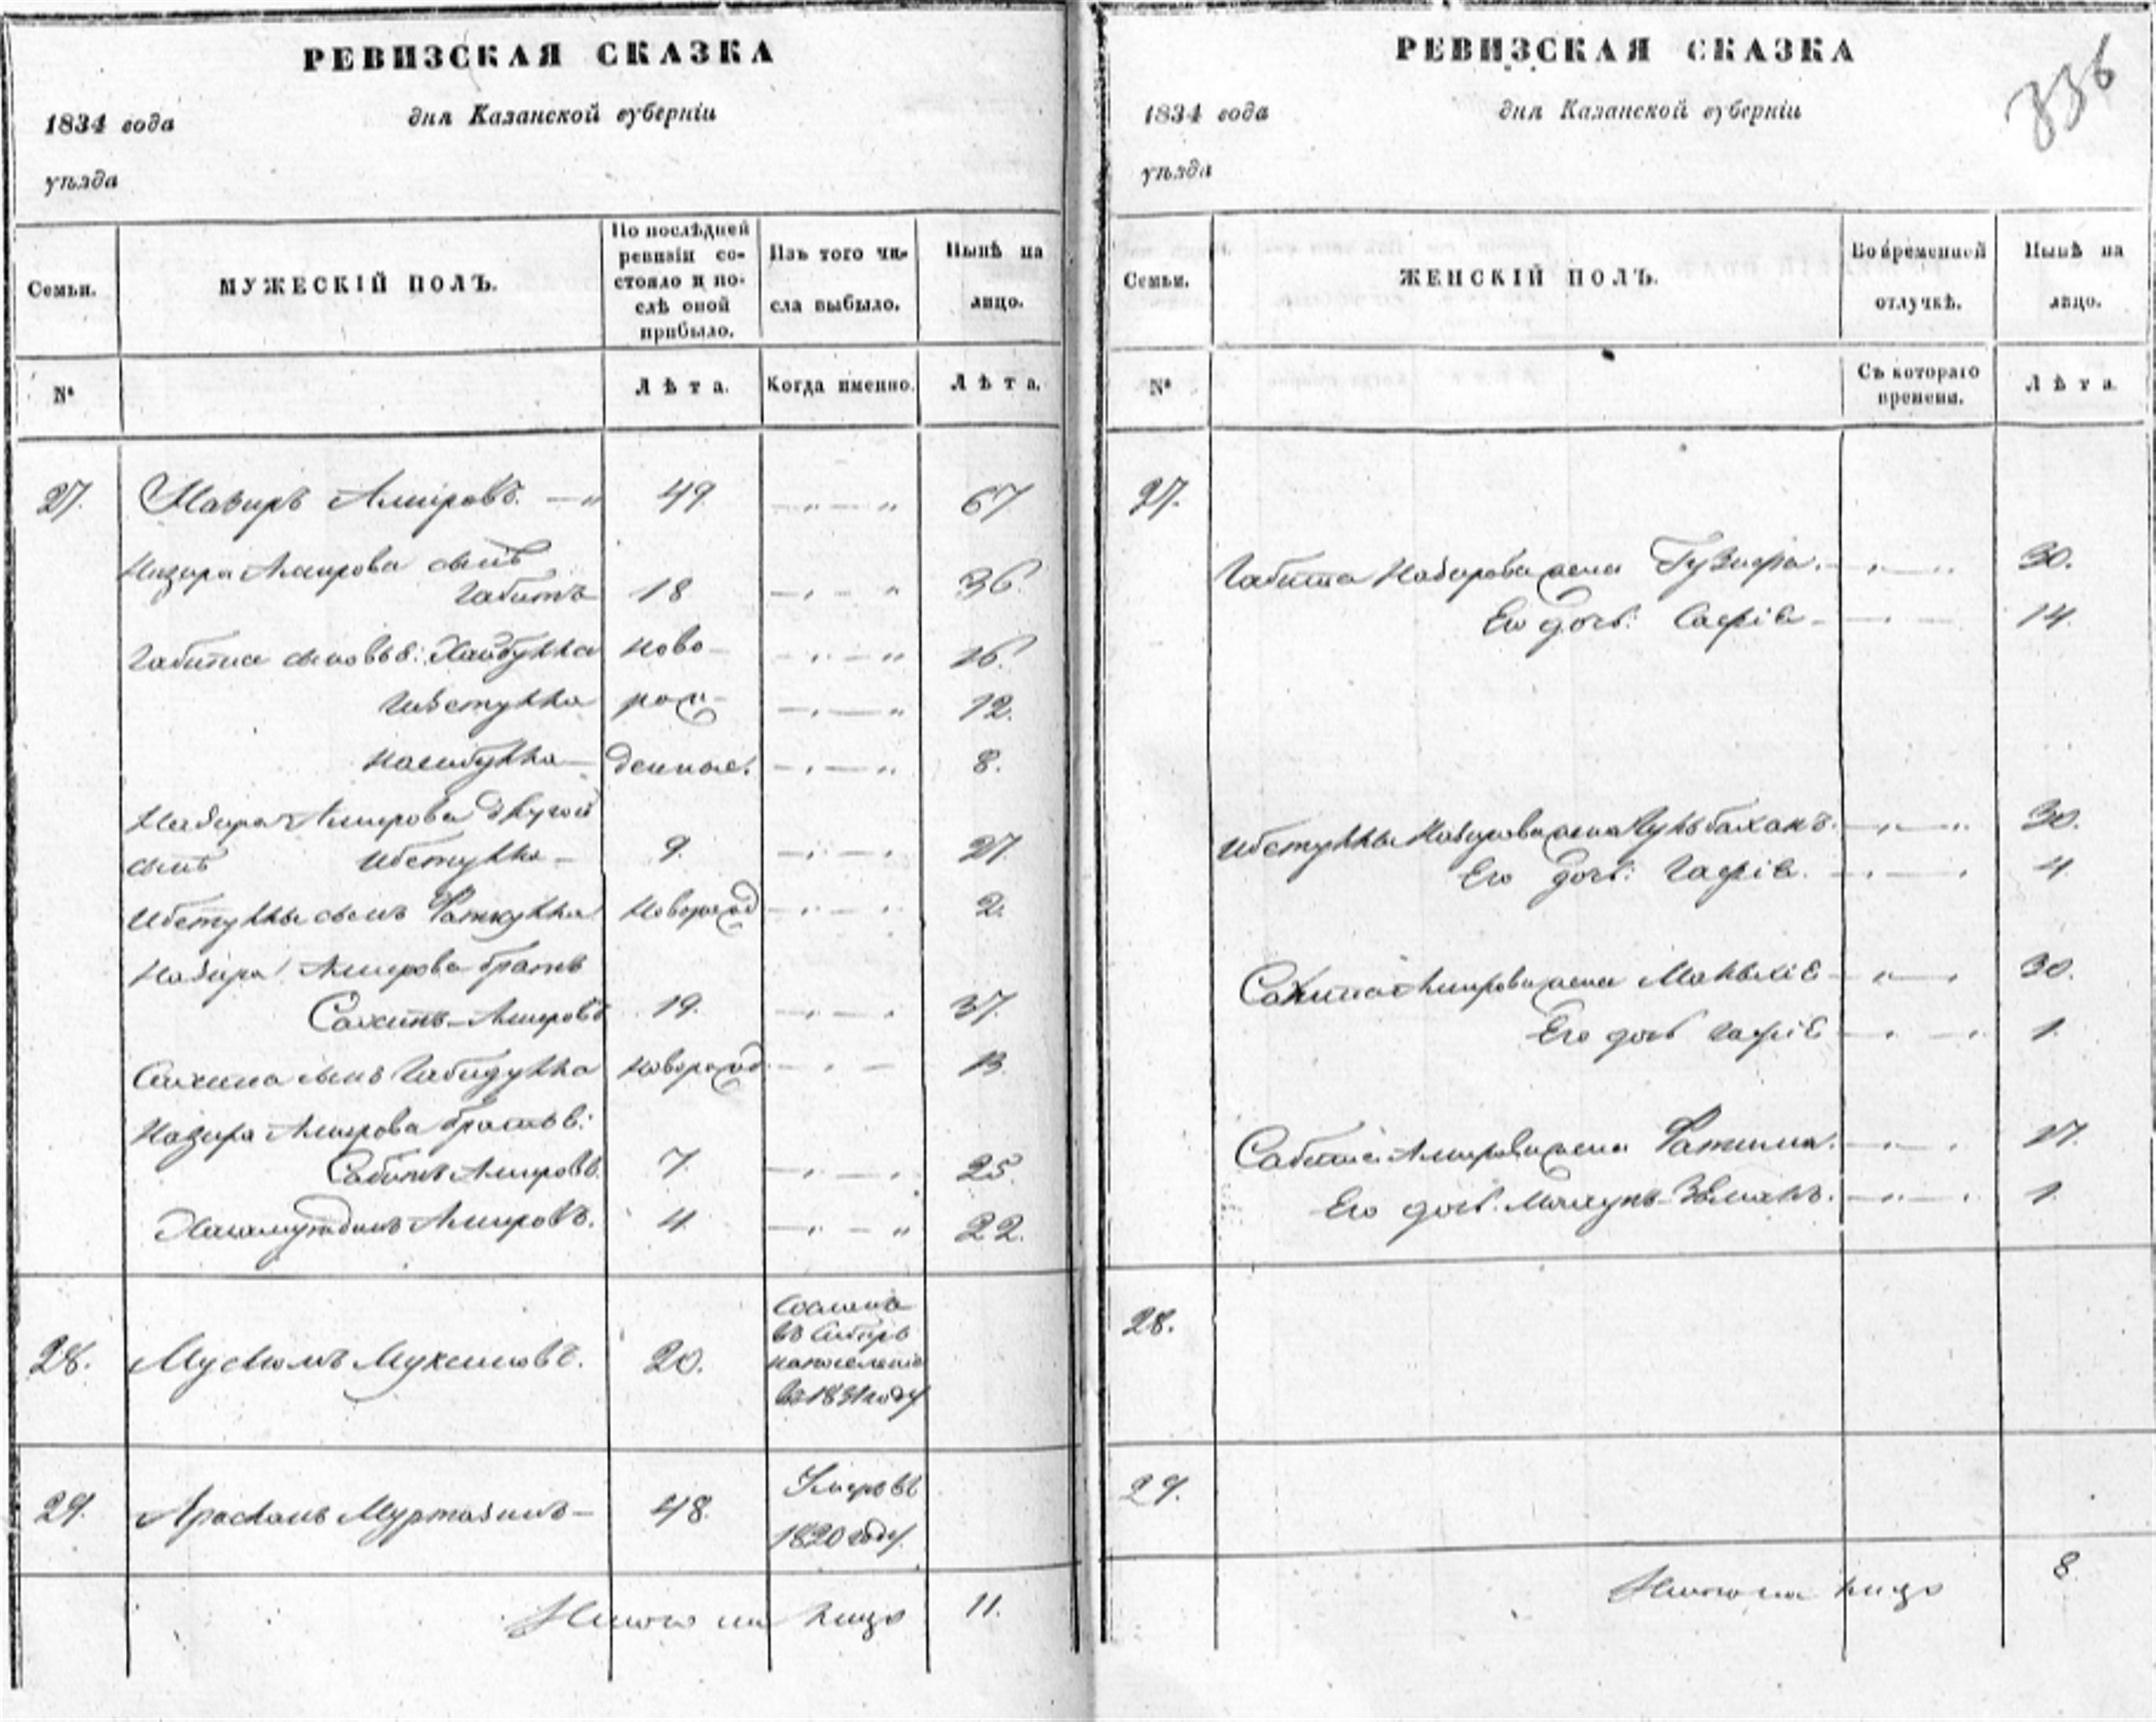 РЕВИЗСКАЯ СКАЗКА
1834 года дня Казанской губерніи
уѣзда
Семьи. МУЖЕСКІЙ ПОЛЪ. По послѣдней ревизіи состояло и послѣ оной прибыло. Изъ того числа выбыло. Нынѣ на лицо.
№ Лѣта. Когда именно. Лѣта.
27. Назиръ Амировъ. 49. 67
Назира Амирова сынъ
Габитъ 18 36.
Габита сыновья: Хайбулла ново- 16.
рож- 12.
Насибулла денные. 8.
Назира Амирова другой
сынъ 9. 27
сынъ Фаткулла новорожд 2.
Назира Амирова братъ
Сахипъ Амировъ 19. 37.
Сахипа сынъ Габидулла новорожд. 13.
Назира Амирова братья:
Сабитъ Амировъ. 7. 25.
Амировъ. 4 22.
28. Муслюмъ Муксиновъ. 20. Сосланъ
въ Сибирь
на поселеніе
въ 1831 году
29. Арасланъ Муртазинъ 48. Умеръ въ
1820 году.
Итого на лицо 11.
РЕВИЗСКАЯ СКАЗКА
336
1834 года дня Казанской губерніи
уѣзда
Семьи. ЖЕНСКІЙ ПОЛЪ. Во временной отлучкѣ. Нынѣ на лицо.
№ Съ котораго времени. Лѣта.
27.
Габита Назирова жена 30.
Его дочь: Сафія 14.
Назирова жена 30.
Его дочь: Гафія. 4
Сахипа Амирова жена 30.
Его дочь Гафіе 1.
Сабита Амирова жена Фатима. 27.
Его дочь. 1.
28.
29.
Итого на лицо 8